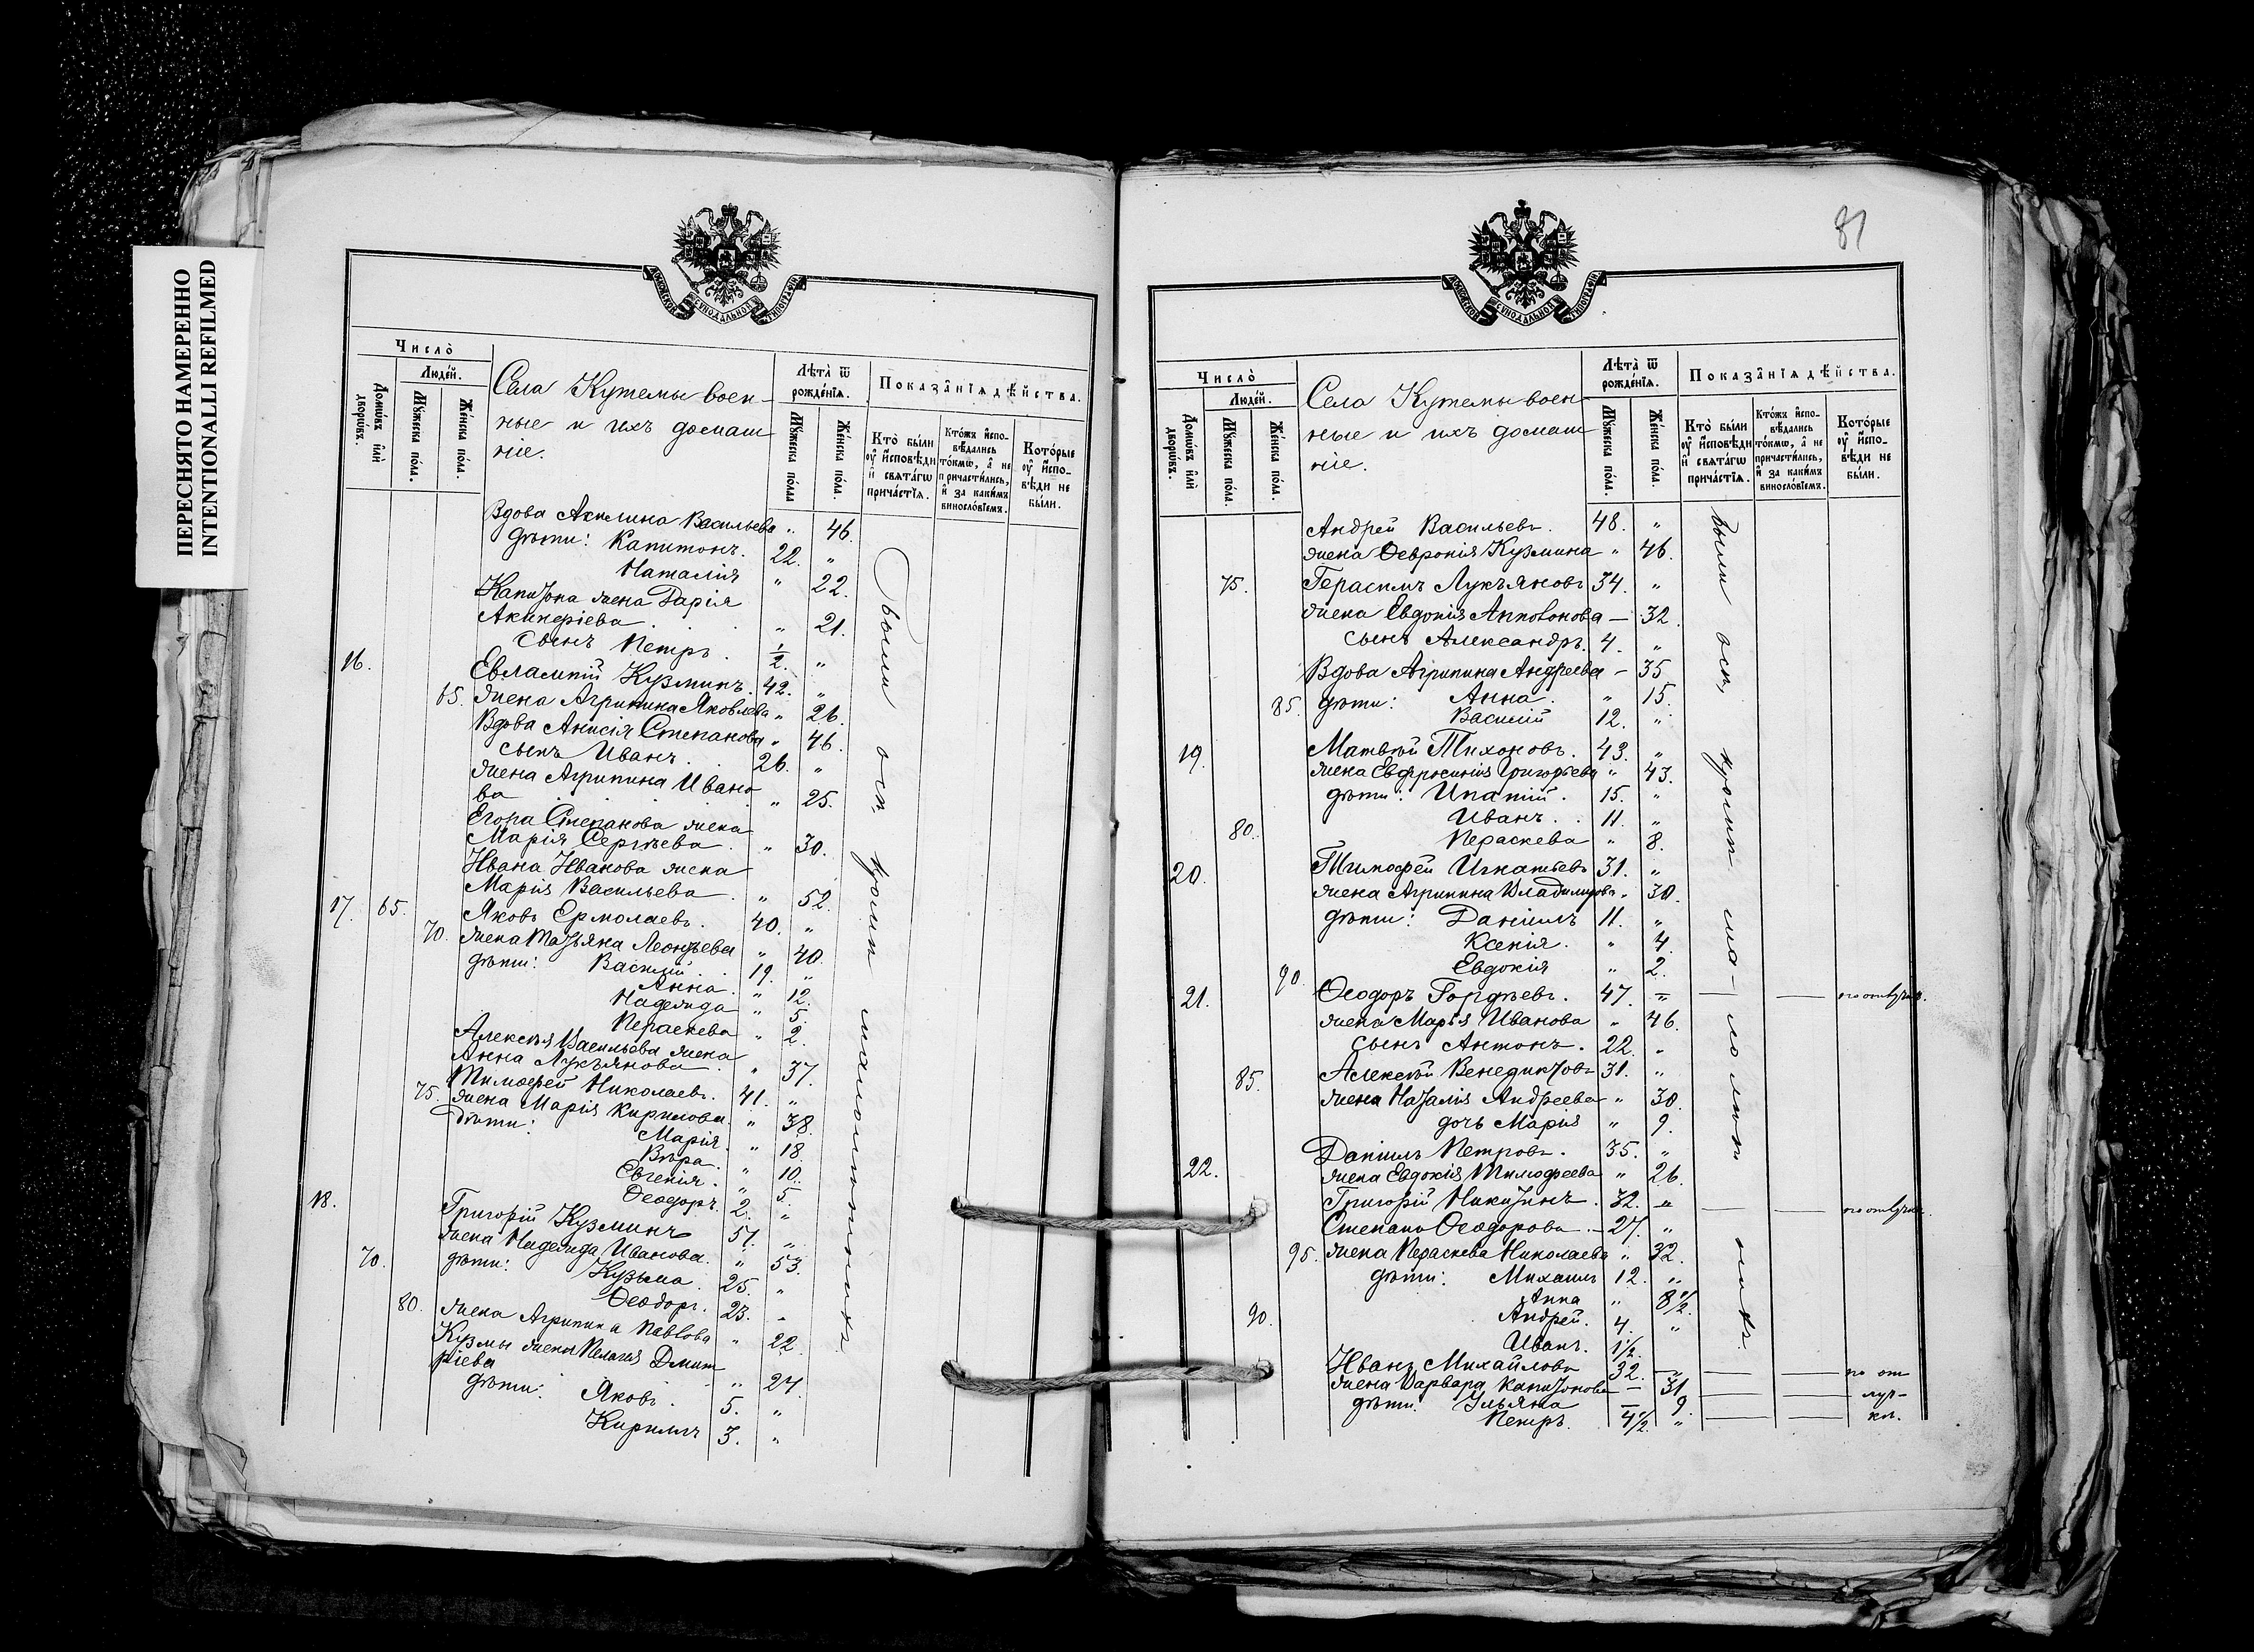 ПЕРЕСНЯТО НАМЕРЕННО
INTENTIONALLI REFILMED
Число̀
Людéй.
Домѡ́въ и҆лѝ дворѡ́въ.
Мꙋ́жеска по́ла.
Же́нска по́ла.
Села Кутемы воен-
ные и ихъ домаш
ніе.
Лѣта̀ ѿ рожде́нїѧ.
Мꙋ́жеска по́ла
Же́нска по́ла.
Показа̑нїѧ дѣ́йства.
Кто̀ бы́ли оу҆ и҆сповѣди и҆ свѧта́гѡ прича́стїѧ.
Кто́жъ и҆спо-вѣдались то́кмѡ, а҆ не причасти́лись, и҆ за каки́мъ винослѡ́вїемъ.
Кото́рые оу҆ и҆спо-вѣди не бы́ли.
Вдова Акилина Васильева " 46.
дѣти: Капитонъ. 22. "
Наталія " 22.
Капитона жена Дарія
Акиндіева . " 21.
сынъ Петръ . 1/2. "
16. Евлампій Кузминъ. 42. "
65. жена Агрипина Яковлева " 26.
Вдова Анисія Степанова " 46.
сынъ Иванъ . 26. "
жена Агрипина Ивано
ва . . . " 25.
Егора Степанова жена
Марія Сергѣева . " 30.
Ивана Иванова жена
Марія Васильева . " 52.
17. 65. Яковъ Ермолаевъ . 40. "
70. жена Татьяна Леонтьева " 40.
дѣти: Василій . . 19. "
Анна . " 12.
Надежда " 5.
Параскева " 2.
Алексѣя Васильева жена
Анна Лукъянова . " 37.
Тимофей Николаевъ. 41. "
75. жена Марія Кирилова " 38.
Дѣти: Марія. " 18.
Вѣра. " 10.
Евгенія . " 5.
Ѳеодоръ. 2. "
18. Григорій Кузминъ 51. "
жена Надежда Иванова. " 53.
70. дѣти: Кузьма . 25. "
Ѳеодоръ. 23. "
80. жена Агрипина Павлова " 22.
Кузмы жена Пелагея Дмит
ріева " 24.
дѣти: Яковъ . 5. "
Кириллъ 3. "
были всѣ кромѣ малолѣтнихъ.
81
Число̀
Людéй.
Домѡ́въ и҆лѝ дворѡ́въ.
Мꙋ́жеска по́ла.
Же́нска по́ла.
Села Кутемы воен-
ные и ихъ домаш
ніе.
Лѣта̀ ѿ рожде́нїѧ.
Мꙋ́жеска по́ла.
Же́нска по́ла.
Показа̑нїѧ дѣ́йства.
Кто̀ бы́ли оу҆ и҆сповѣди и҆ свѧта́гѡ прича́стїѧ.
Кто́жъ и҆спо-вѣдались то́кмѡ, а҆ не причасти́лись, и҆ за каки́мъ винослѡ́вїемъ.
Кото́рые оу҆ и҆спо-вѣди не бы́ли.
Андрей Васильевъ. 48. "
жена Ѳевронія Кузмина " 46.
75. Герасимъ Лукъяновъ 34. "
жена Евдокія — 32
сынъ Александръ. 4. "
Вдова Агрипина Андреева — 35
85. дѣти: Анна . " 15.
Василій 12. "
19. Матвѣй Тихоновъ. 43. "
жена Евфросинія Григорьева " 43.
дѣти: Ипатій . 15. "
80. Иванъ . . 11. "
Параскева " 8.
20. Тимофей Игнатьевъ 31. "
жена Агрипина Владимиров. " 30.
дѣти: Даніилъ 11. "
Ксенія . " 4.
90. Евдокія " 2.
21. Ѳеодоръ Гордѣевъ. 47. " — — по отлучкѣ.
жена Марья Иванова " 46.
сынъ Антонъ . 22. "
85. Алексѣй Венедиктовъ 31. "
жена Наталія Андреева " 30.
дочь Марія " 9.
22. Даніилъ Петровъ . 35. "
жена Евдокія Тимофеева " 26.
Григорій Никитинъ . 32. " — — по отлучкѣ.
Степанъ Ѳеодоровъ . — 27. "
95. жена Параскева Николаева " 32.
дѣти: Михаилъ 12. "
Анна " 8 1/2
90. Андрей. 4. "
Иванъ. 1 1/2.
Иванъ Михайловъ 32. " — — по от
жена Варвара Капитонова — 31 — — луч-
дѣти. Ульяна — 9. кѣ.
Петръ. 4 1/2 " — —
были всѣ, кромѣ ма-лолѣтнихъ.